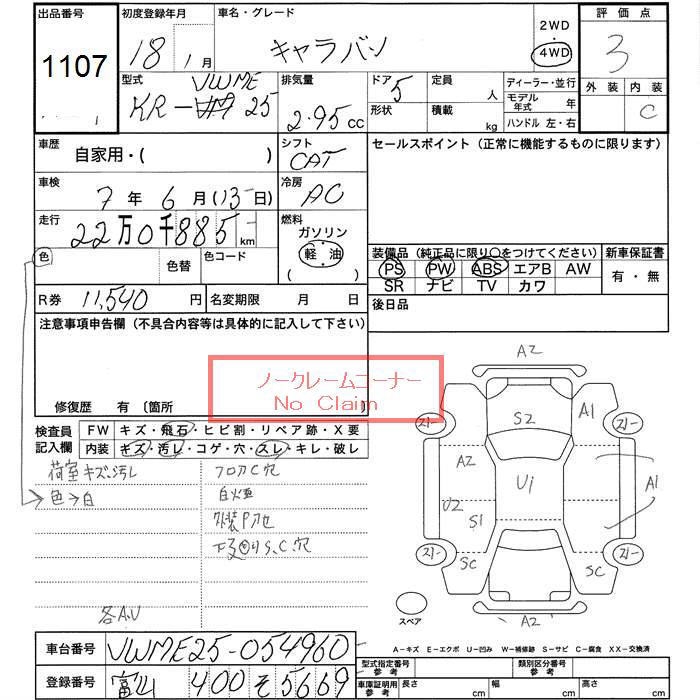 出品番号
1107
初度登録年月
18年 1月
車名・グレード
キャラバン
2WD
・
4WD
評価点
3
外装
内装
C
型式
VWME
KR-VM 25
排気量
2.95 cc
ドア
5
形状
定員
人
積載
kg
ディーラー・並行
モデル年式
年
ハンドル 左・右
車歴
自家用・( )
シフト
CAT
セールスポイント(正常に機能するものに限ります)
車検
7年 6月 (13日)
冷房
AC
走行
22万0千885km
燃料
ガソリン
軽油
( )
色
色替
色コード
装備品(純正品に限り○をつけてください)
新車保証書
PS PW ABS エアB AW
SR ナビ TV カワ
有・無
R券 11,540 円
名変期限 月 日
後日品
注意事項申告欄(不具合内容等は具体的に記入して下さい)
ノークレームコーナー
No Claim
修復歴 有 〔箇所
検査員
記入欄
FW キズ・飛石・ヒビ割・リペア跡・X要
内装 キズ・汚レ・コゲ・穴・スレ・キレ・破レ
荷室キズ・汚レ
色→白
フロアC穴
下廻りS、C穴
各A、U
A2
S2
A1
A2
U1
U2
S1
A1
SC
SC
A2
スペア
A-キズ E-エクボ U-凹ミ W-補修跡 S-サビ C-腐食 XX-交換済
車台番号
VWME25-054960
登録番号
富山 400 そ 5669
型式指定番号
参考
類別区分番号
参考
車庫証明用
参考
長さ
cm
幅
cm
高さ
cm